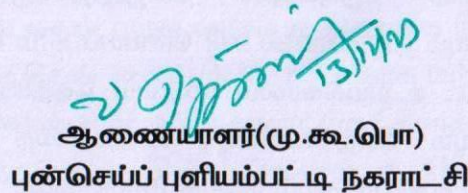 ஆணையாளர்(மு.கூ.பொ)
புன்செய்ப் புளியம்பட்டி நகராட்சி